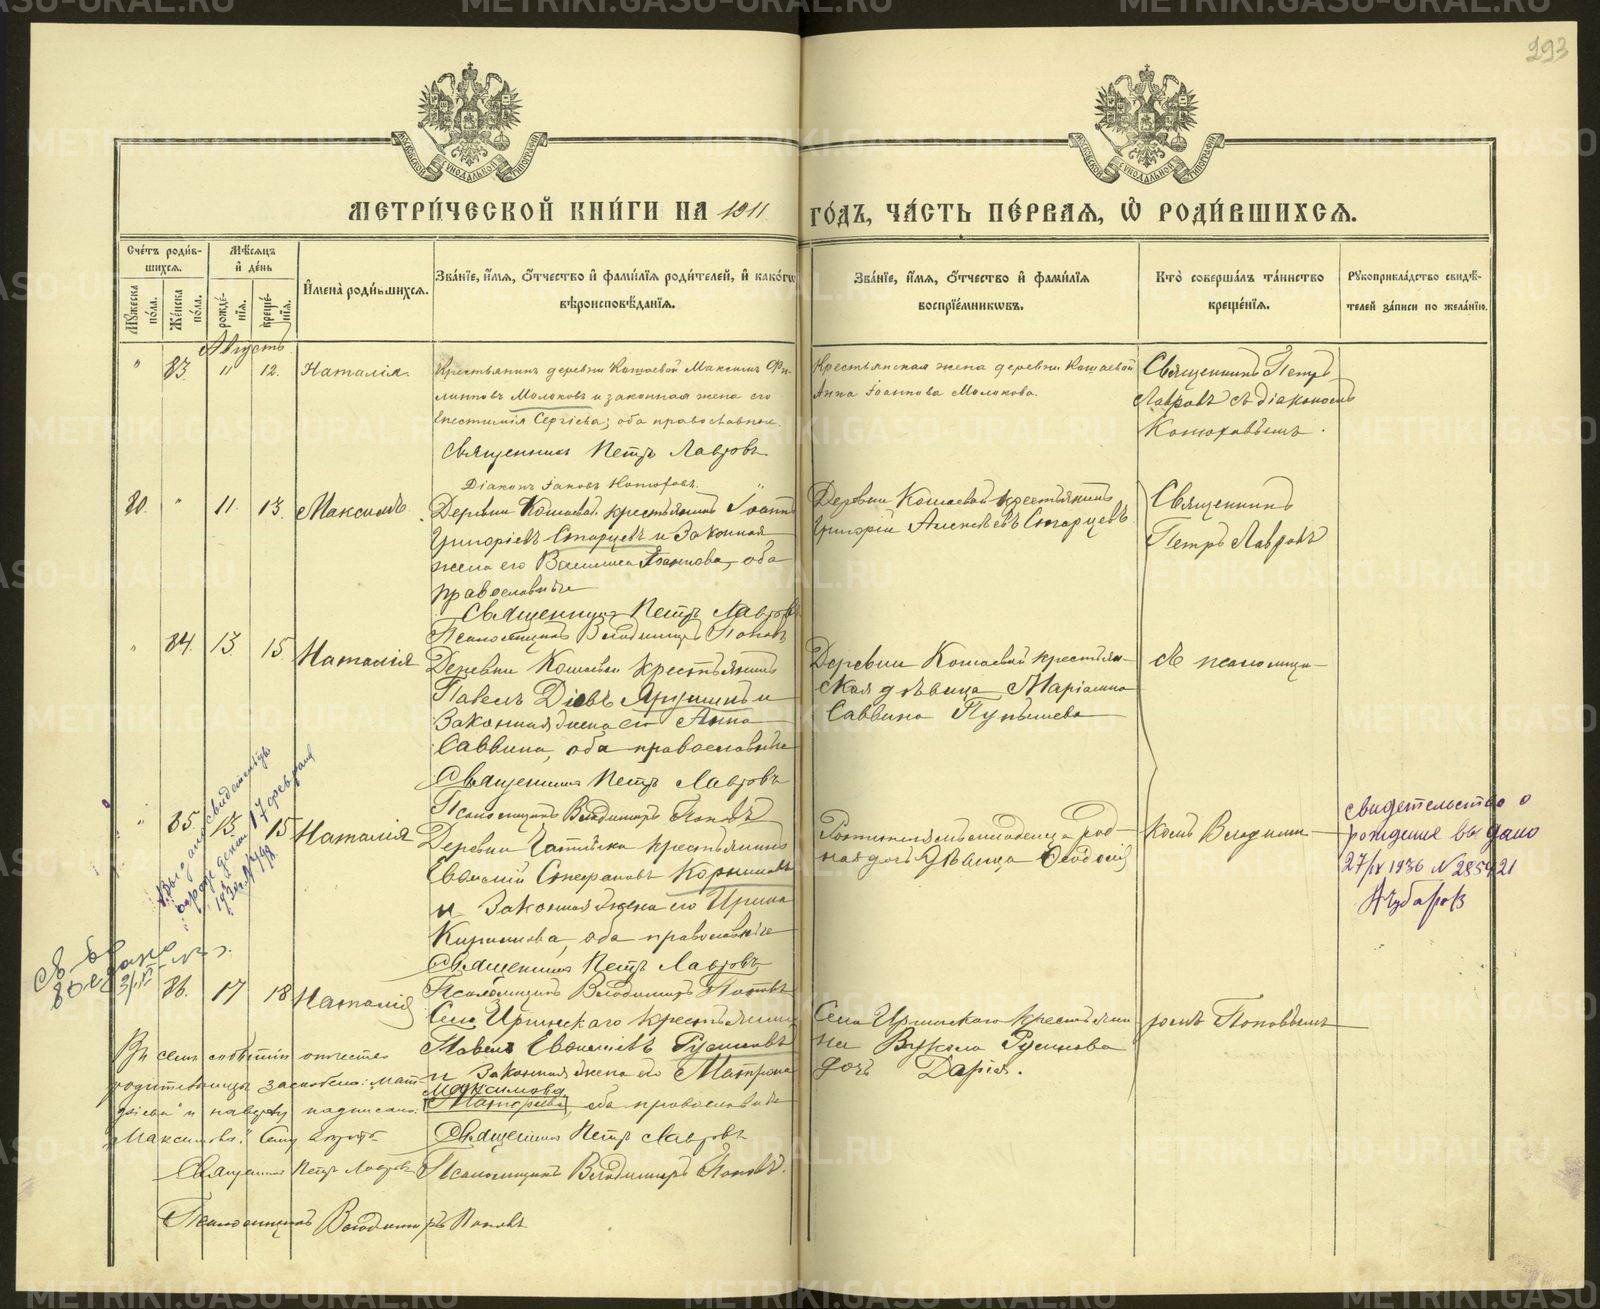 293
МОСКОВСКОЙ СѴНОДАЛЬНОЙ ТИПОГРАФІИ
МОСКОВСКОЙ СѴНОДАЛЬНОЙ ТИПОГРАФІИ
МЕТРИ́ЧЕСКОЙ КНИ́ГИ НА 1911
ГО́ДЪ, ЧА́СТЬ ПЕ́РВАЯ, Ѡ РОДИ́ВШИХСЯ.
Сче́тъ роди́в-
шихся.
Мꙋ́жеска по́ла.
Же́нска по́ла.
Мѣ́сяцъ и де́нь
рожде́-
нія.
креще́-
нія.
Имена̀ роди́вшихся.
Зва́ніе, и́мя, о́тчество и фами́лія роди́телей, и како́гѡ
вѣроисповѣ́данія.
Зва́ніе, и́мя, о́тчество и фами́лія
воспріе́мниковъ.
Кто̀ соверша́лъ та́инство
креще́нія.
Рꙋкоприкла́дство свидѣ́-
телей за́писи по жела́нію.
Августъ
" 83. 11 12. Наталія.
Крестьянинъ деревни Кошаевой Максимъ Фи-
липповъ Молоковъ и законная жена его
Сергіева; оба православные.
Священникъ Петръ Лавровъ
Діаконъ Іаковъ
Крестьянская жена деревни Кошаевой
Анна Іоаннова Молокова.
Священникъ Петръ
Лавровъ съ діакономъ
80. " 11. 13. Максимъ
Деревни Кошаевой крестьянинъ Іоаннъ
Григоріевъ Старцевъ и законная
жена его Василиса Іоаннова, оба
православные
Священникъ Петръ Лавровъ
Псаломщикъ Владимиръ Поповъ
Деревни Кошаевой крестьянинъ
Григорій Алексѣевъ Старцевъ
Священникъ
Петръ Лавровъ
" 84. 13. 15 Наталія
Деревни Кошаевой крестьянинъ
Павелъ Діевъ и
законная жена его Анна
Саввина, оба православные
Священникъ Петръ Лавровъ
Псаломщикъ Владимиръ Поповъ
Деревни Кошаевой крестьян-
ская дѣвица Маріамна
Саввина
съ псаломщи-
" 85. 13. 15 Наталія
Деревни крестьянинъ
Евѳимій Стефановъ
и законная жена его Ирина
оба православные
Священникъ Петръ Лавровъ
Псаломщикъ Владимиръ Поповъ
род-
ная дочь дѣвица
комъ Владими-
свидетельство о
рождение выдано
27/IV 1936 N 285421
Выдано свидетельство
о рождении 17 февраля
выдана
86. 17 18 Наталія
Села Уринскаго крестьянинъ
Павелъ Евѳиміевъ Русиновъ
и законная жена его Матрона
Максимова
Матѳіева, оба православные
Священникъ Петръ Лавровъ
Псаломщикъ Владимиръ Поповъ.
Села Уринскаго крестьяни-
на Вукола Русинова
дочь Дарія.
ромъ Поповымъ
Въ семъ событіи отчество
родительницы заскоблено: "Мат-
ѳіева" и наверху надписано:
"Максимова".
Священникъ Петръ Лавровъ
Псаломщикъ Владимиръ Поповъ
METRIKI.GASO-URAL.RU